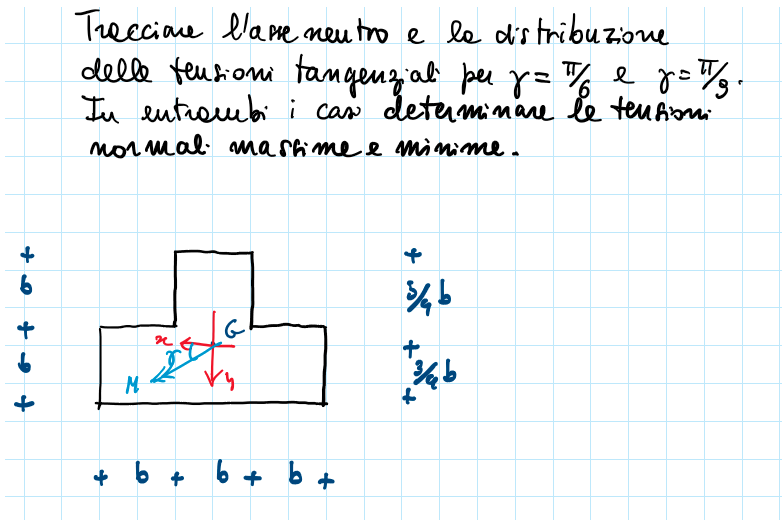 Tracciare l'asse neutro e la distribuzione
delle tensioni tangenziali per γ = π/6 e γ = π/3.
In entrambi i casi determinare le tensioni
normali massime e minime.
+ +
b 5/4 b
+ G
x +
b γ 3/4 b
M y
+ +
+ b + b + b +